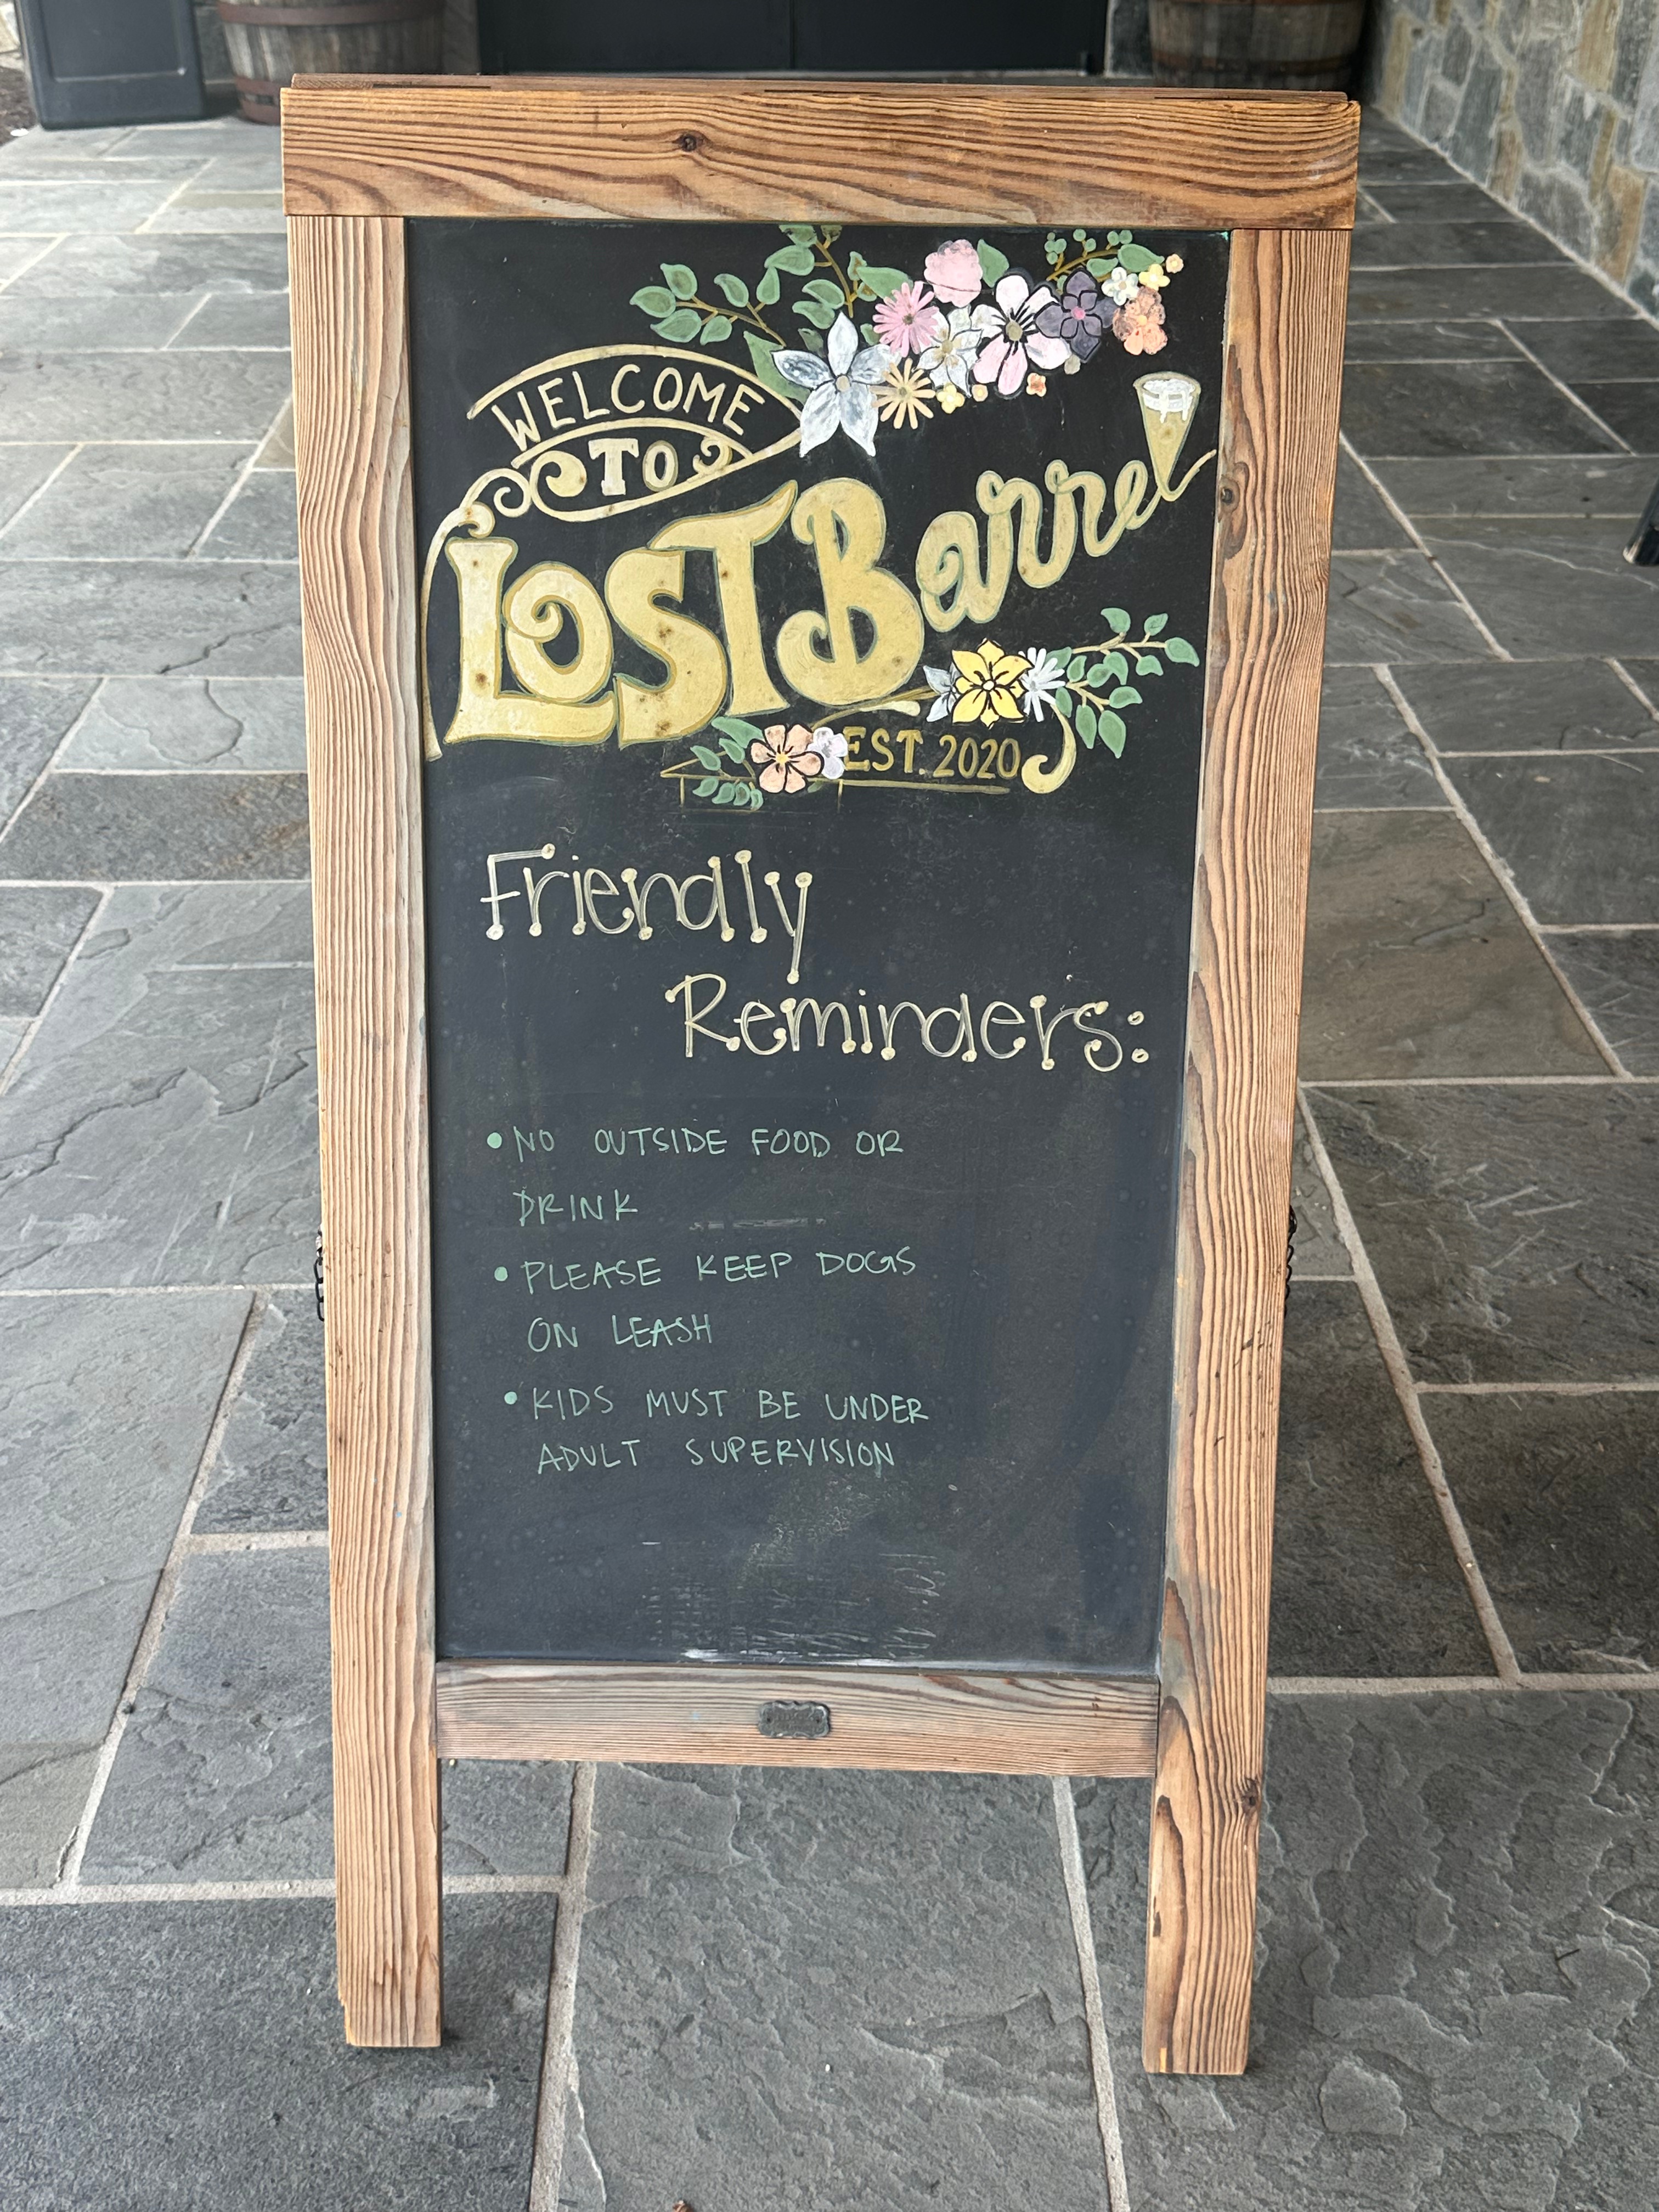 WELCOME
TO
LOST Barrel
EST. 2020
Friendly
Reminders:
• NO OUTSIDE FOOD OR
DRINK
• PLEASE KEEP DOGS
ON LEASH
• KIDS MUST BE UNDER
ADULT SUPERVISION